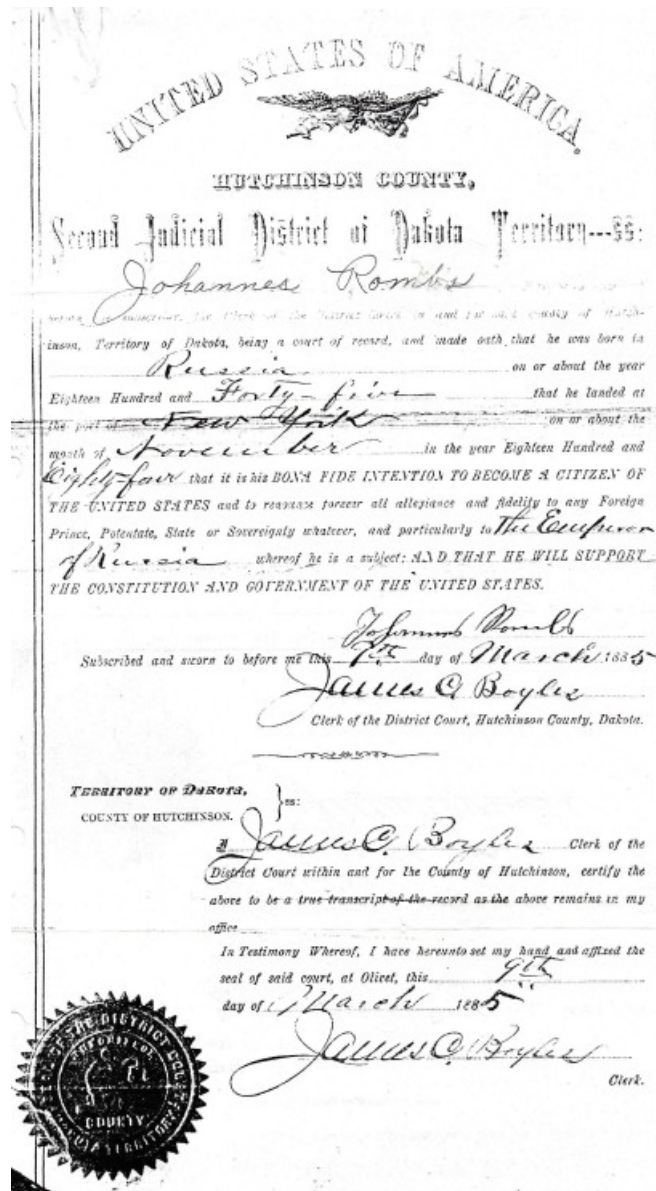 UNITED STATES OF AMERICA,
HUTCHINSON COUNTY,
Second Judicial District of Dakota Territory---ss:
Johannes Rombs
the Clerk of the District Court in and for said county of Hutch-
inson, Territory of Dakota, being a court of record, and made oath that he was born in
Russia on or about the year
Eighteen Hundred and Forty-five that he landed at
the port of New York on or about the
month of November in the year Eighteen Hundred and
Eighty-four that it is his BONA FIDE INTENTION TO BECOME A CITIZEN OF
THE UNITED STATES and to renounce forever all allegiance and fidelity to any Foreign
Prince, Potentate, State or Sovereignty whatever, and particularly to The Emperor
of Russia whereof he is a subject: AND THAT HE WILL SUPPORT
THE CONSTITUTION AND GOVERNMENT OF THE UNITED STATES.
Johannes Rombs
Subscribed and sworn to before me this day of March 1885
James C Boyles
Clerk of the District Court, Hutchinson County, Dakota.
TERRITORY OF DAKOTA,
COUNTY OF HUTCHINSON. } ss:
I James C. Boyles Clerk of the
District Court within and for the County of Hutchinson, certify the
above to be a true transcript of the record as the above remains in my
office
In Testimony Whereof, I have hereunto set my hand and affixed the
seal of said court, at Olivet, this 9th
day of March 1885
James C. Boyles
Clerk.
SEAL OF THE DISTRICT COURT
COUNTY
DAKOTA TERRITORY